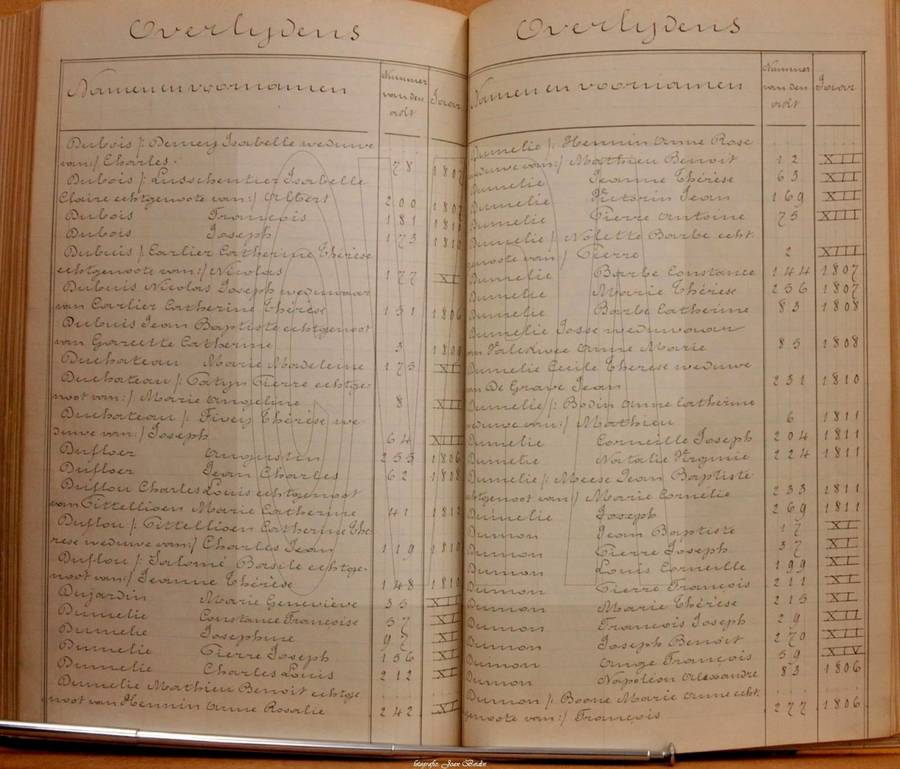 Overlydens
Namen en voornamen
Nummer van den akt
Jaar
Dubois /: Demey Isabelle weduwe
van:/ Charles. 78 1807
Dubois /: Lusschentier Isabelle
Claire echtgenote van:/ Albers 200 1807
Dubois François 181 1810
Dubois Joseph 173 1810
Dubuis / Carlier Catherine Thérèse
echtgenoote van:/ Nicolas 177 XI
Dubuis Nicolas Joseph weduwaar
van Carlier Catherine Thérèse 131 1806
Dubuis Jean Baptiste echtgenoot
van Garrette Catherine 3 1809
Duchateau Marie Madeleine 173 XI
Duchateau /: Catyn Pierre echtge-
noot van:/ Marie Angeline 8 XII
Duchateau /: Fivez Thérèse we
duwe van:/ Joseph 64 XIII
Dufloer Augustin 255 1806
Dufloer Jean Charles 62 1808
Duflou Charles Louis echtgenoot
van Tittellioen Marie Catherine 41 1812
Duflou /: Tittellioen Catherine Thé-
rese weduwe van:/ Charles Jean 119 1810
Duflou /: Salomé Basile echtge-
noot van:/ Jeanne Thérèse 148 1810
Dujardin Marie Geneviève 35 XII
Dumelie Constance Françoise 37 XI
Dumelie Josephine 97 XI
Dumelie Pierre Joseph 156 XI
Dumelie Charles Louis 212 XI
Dumelie Mathieu Benoit echtge
noot van Hennin Anne Rosalie 242 XI
Overlydens
Namen en voornamen
Nummer van den akt
Jaar
Dumelie /: Hennin Anne Rose
weduwe van:/ Matthieu Benoit 12 XII
Dumelie Jeanne Thérèse 63 XII
Dumelie Victorin Jean 169 XII
Dumelie Pierre Antoine 75 XIII
Dumelie /: Nolette Barbe echt.
genoote van:/ Pierre 2 XIII
Dumelie Barbe Constance 144 1807
Dumelie Marie Thérèse 236 1807
Dumelie Barbe Catherine 83 1808
Dumelie Josse weduwaar
van Valckwee Anne Marie 85 1808
Dumelie Cecile Therese weduwe
van De Grave Jean 231 1810
Dumelie /: Bodin Anne Catherine
weduwe van:/ Mathieu 6 1811
Dumelie Corneille Joseph 204 1811
Dumelie Natalie Virginie 224 1811
Dumelie /: Meese Jean Baptiste
echtgenoot van:/ Marie Cornelie 233 1811
Dumelie Joseph 269 1811
Dumon Jean Baptiste 17 XI
Dumon Pierre Joseph 37 XI
Dumon Louis Corneille 199 XI
Dumon Pierre François 211 XI
Dumon Marie Thérèse 213 XI
Dumon François Joseph 29 XII
Dumon Joseph Benoit 270 XII
Dumon Ange François 59 XIV
Dumon Napoléon Alexandre 83 1806
Dumon /: Boone Marie Anne echt.
genoote van:/ François 277 1806
fotografie: Joan Beidin